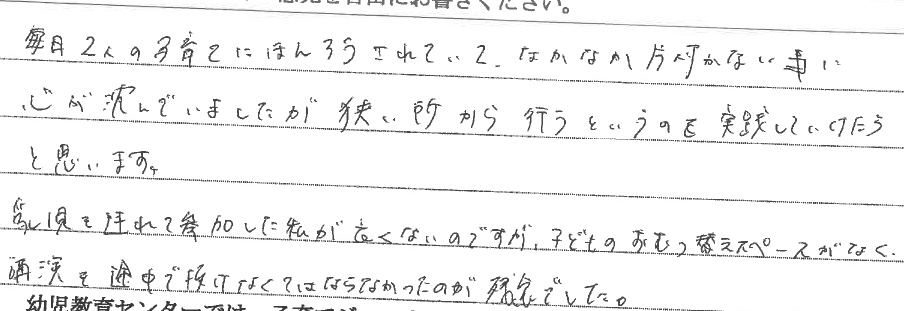 ご意見を自由にお書きください。
毎日2人の子育てにほんろうされていて、なかなか片付かない事に
心が沈んでいましたが狭い所から行うというのを実践していけたら
と思います。
乳児を連れて参加した私が良くないのですが、子どものおむつ替えスペースがなく、
講演を途中で抜けなくてはならなかったのが残念でした。
幼児教育センターでは、子育て